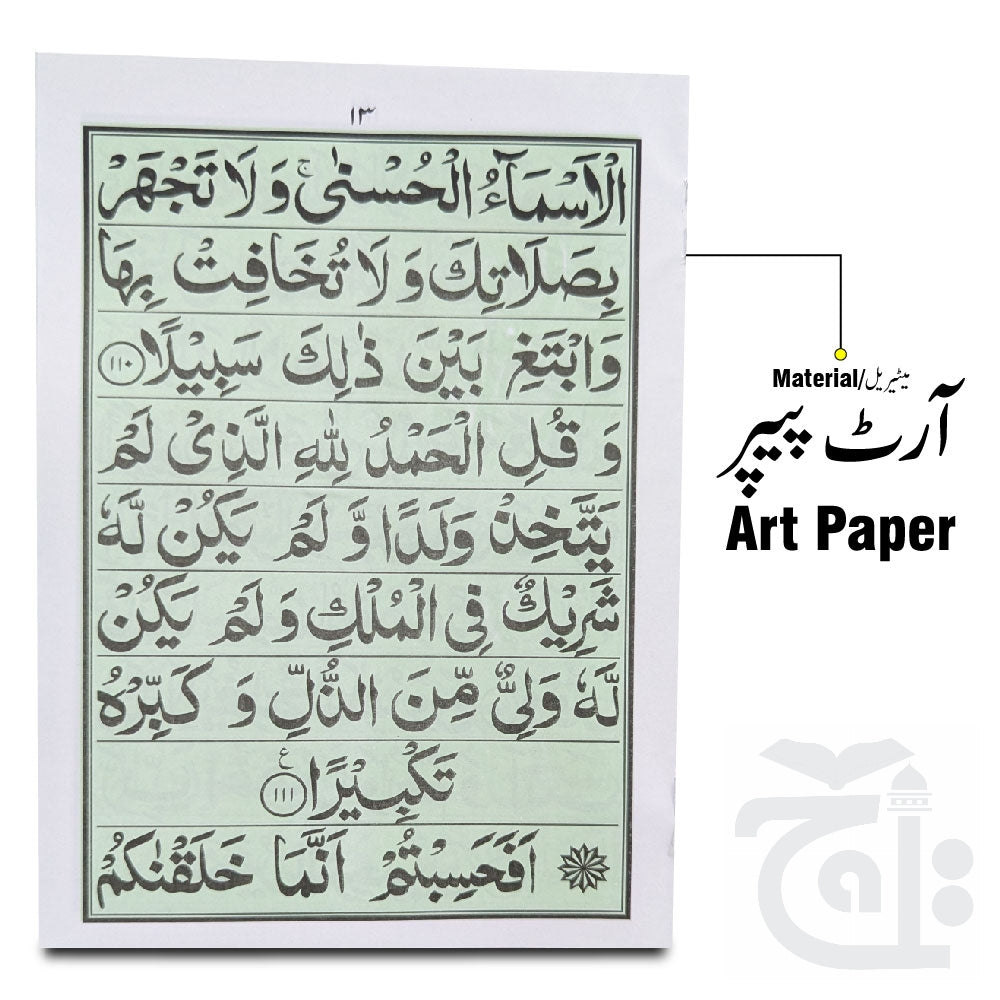 ١٣
الْاَسْمَآءُ الْحُسْنٰىۚ وَلَا تَجْهَرْ
بِصَلَاتِكَ وَلَا تُخَافِتْ بِهَا
وَابْتَغِ بَيْنَ ذٰلِكَ سَبِيْلًا ١١٠
وَ قُلِ الْحَمْدُ لِلّٰهِ الَّذِىْ لَمْ
يَتَّخِذْ وَلَدًا وَّ لَمْ يَكُنْ لَّهٗ
شَرِيْكٌ فِى الْمُلْكِ وَ لَمْ يَكُنْ
لَّهٗ وَلِىٌّ مِّنَ الذُّلِّ وَ كَبِّرْهُ
تَكْبِيْرًا ١١١ ع
اَفَحَسِبْتُمْ اَنَّمَا خَلَقْنٰكُمْ
Material/میٹیریل
آرٹ پیپر
Art Paper